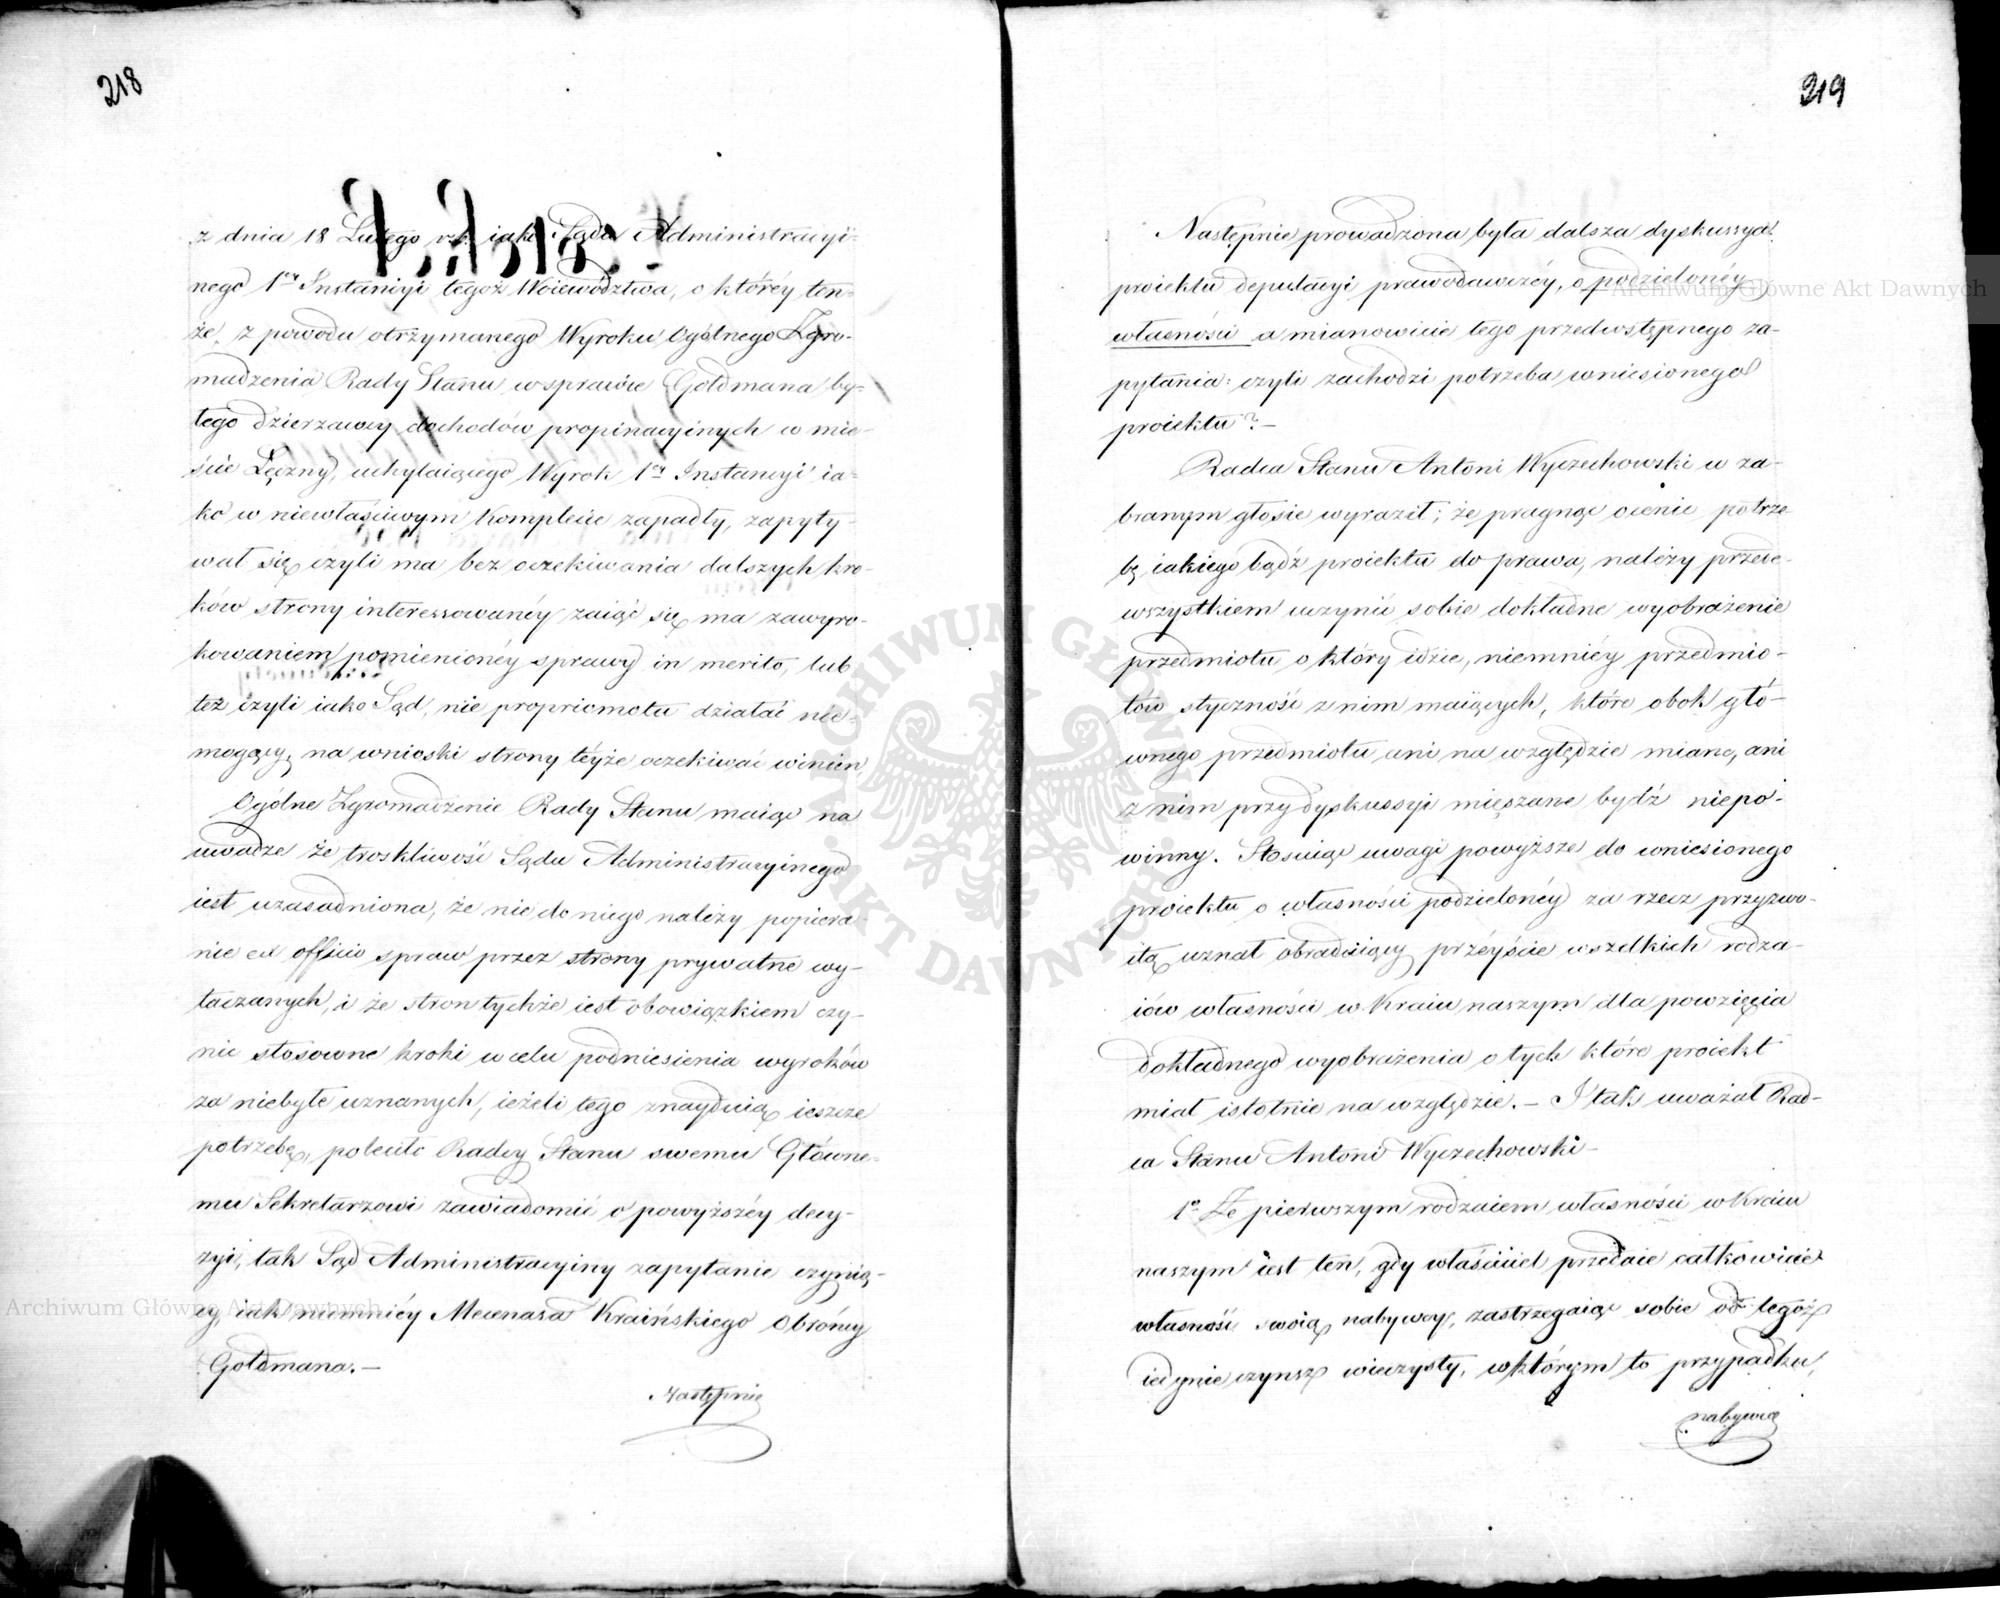 218
z dnia 18 Lutego r.b. iako Sądu Administracyi-
nego 1ey Instancyi tegoż Woiewództwa, o któréy ten-
że, z powodu otrzymanego Wyroku Ogólnego Zgro-
madzenia Rady Stanu w sprawie Gołdmana by-
łego dzierzawcy dochodów propinacyinych w mie-
ście Łęczny, uchylaiącego Wyrok 1ey Instancyi ia-
ko w niewłaściwym Komplecie zapadły, zapyty-
wał się czyli ma bez oczekiwania dalszych kro-
ków strony interessowanéy zaiąć się ma zawyro-
kowaniem pomienionéy sprawy in merito, lub
też czyli iako Sąd, nie proprio motu działać nie-
mogący, na wnioski strony téyże oczekiwać winien,
Ogólne Zgromadzenie Rady Stanu maiąc na
uwadze że troskliwość Sądu Administracyinego
iest uzasadniona, że nie do niego należy popiera-
nie ex officio spraw przez strony prywatne wy-
taczanych, i że stron tychże iest obowiązkiem czy-
nić stosowne kroki w celu podniesienia wyroków
za niebyłe uznanych, ieżeli tego znayduią ieszcze
potrzebę, poleciło Radcy Stanu swemu Główne-
mu Sekretarzowi zawiadomić o powyższéy decy-
zyi, tak Sąd Administracyiny zapytanie czynią-
cy, iak niemniéy Mecenasa Kraińskiego Obrońcy
Gołdmana.—
Następnie
219
Następnie prowadzona była dalsza dyskussya
proiektu deputacyi prawodawczéy, o podzielonéy
własności a mianowicie tego przedwstępnego za-
pytania: czyli zachodzi potrzeba wniesionego
proiektu?—
Radca Stanu Antoni Wyczechowski w za-
branym głosie wyraził; że pragnąc ocenić potrze
bę iakiego bądź proiektu do prawa, należy przede-
wszystkiem uczynić sobie dokładne wyobrażenie
przedmiotu o który idzie, niemniéy przedmio-
tów styczność z nim maiących, które obok głó-
wnego przedmiotu ani na względzie miane, ani
z nim przy dyskussyi mięszane bydź niepo-
winny. Stosuiąc uwagi powyższe do wniesionego
proiektu o własności podzielonéy za rzecz przyzwo-
itą uznał obraduiący przéyście wszelkich rodza-
iów własności w Kraiu naszym dla powzięcia
dokładnego wyobrażenia o tych które proiekt
miał istotnie na względzie.— I tak uważał Rad-
ca Stanu Antoni Wyczechowski—
1o Że pierwszym rodzaiem własności w Kraiu
naszym iest ten, gdy właściciel przedaie całkowicie
własność swoią nabywcy, zastrzegaiąc sobie od tegoż
iedynie czynsz wieczysty, w którym to przypadku,
nabywca
Archiwum Główne Akt Dawnych
Archiwum Główne Akt Dawnych
ARCHIWUM GŁÓWNE AKT DAWNYCH